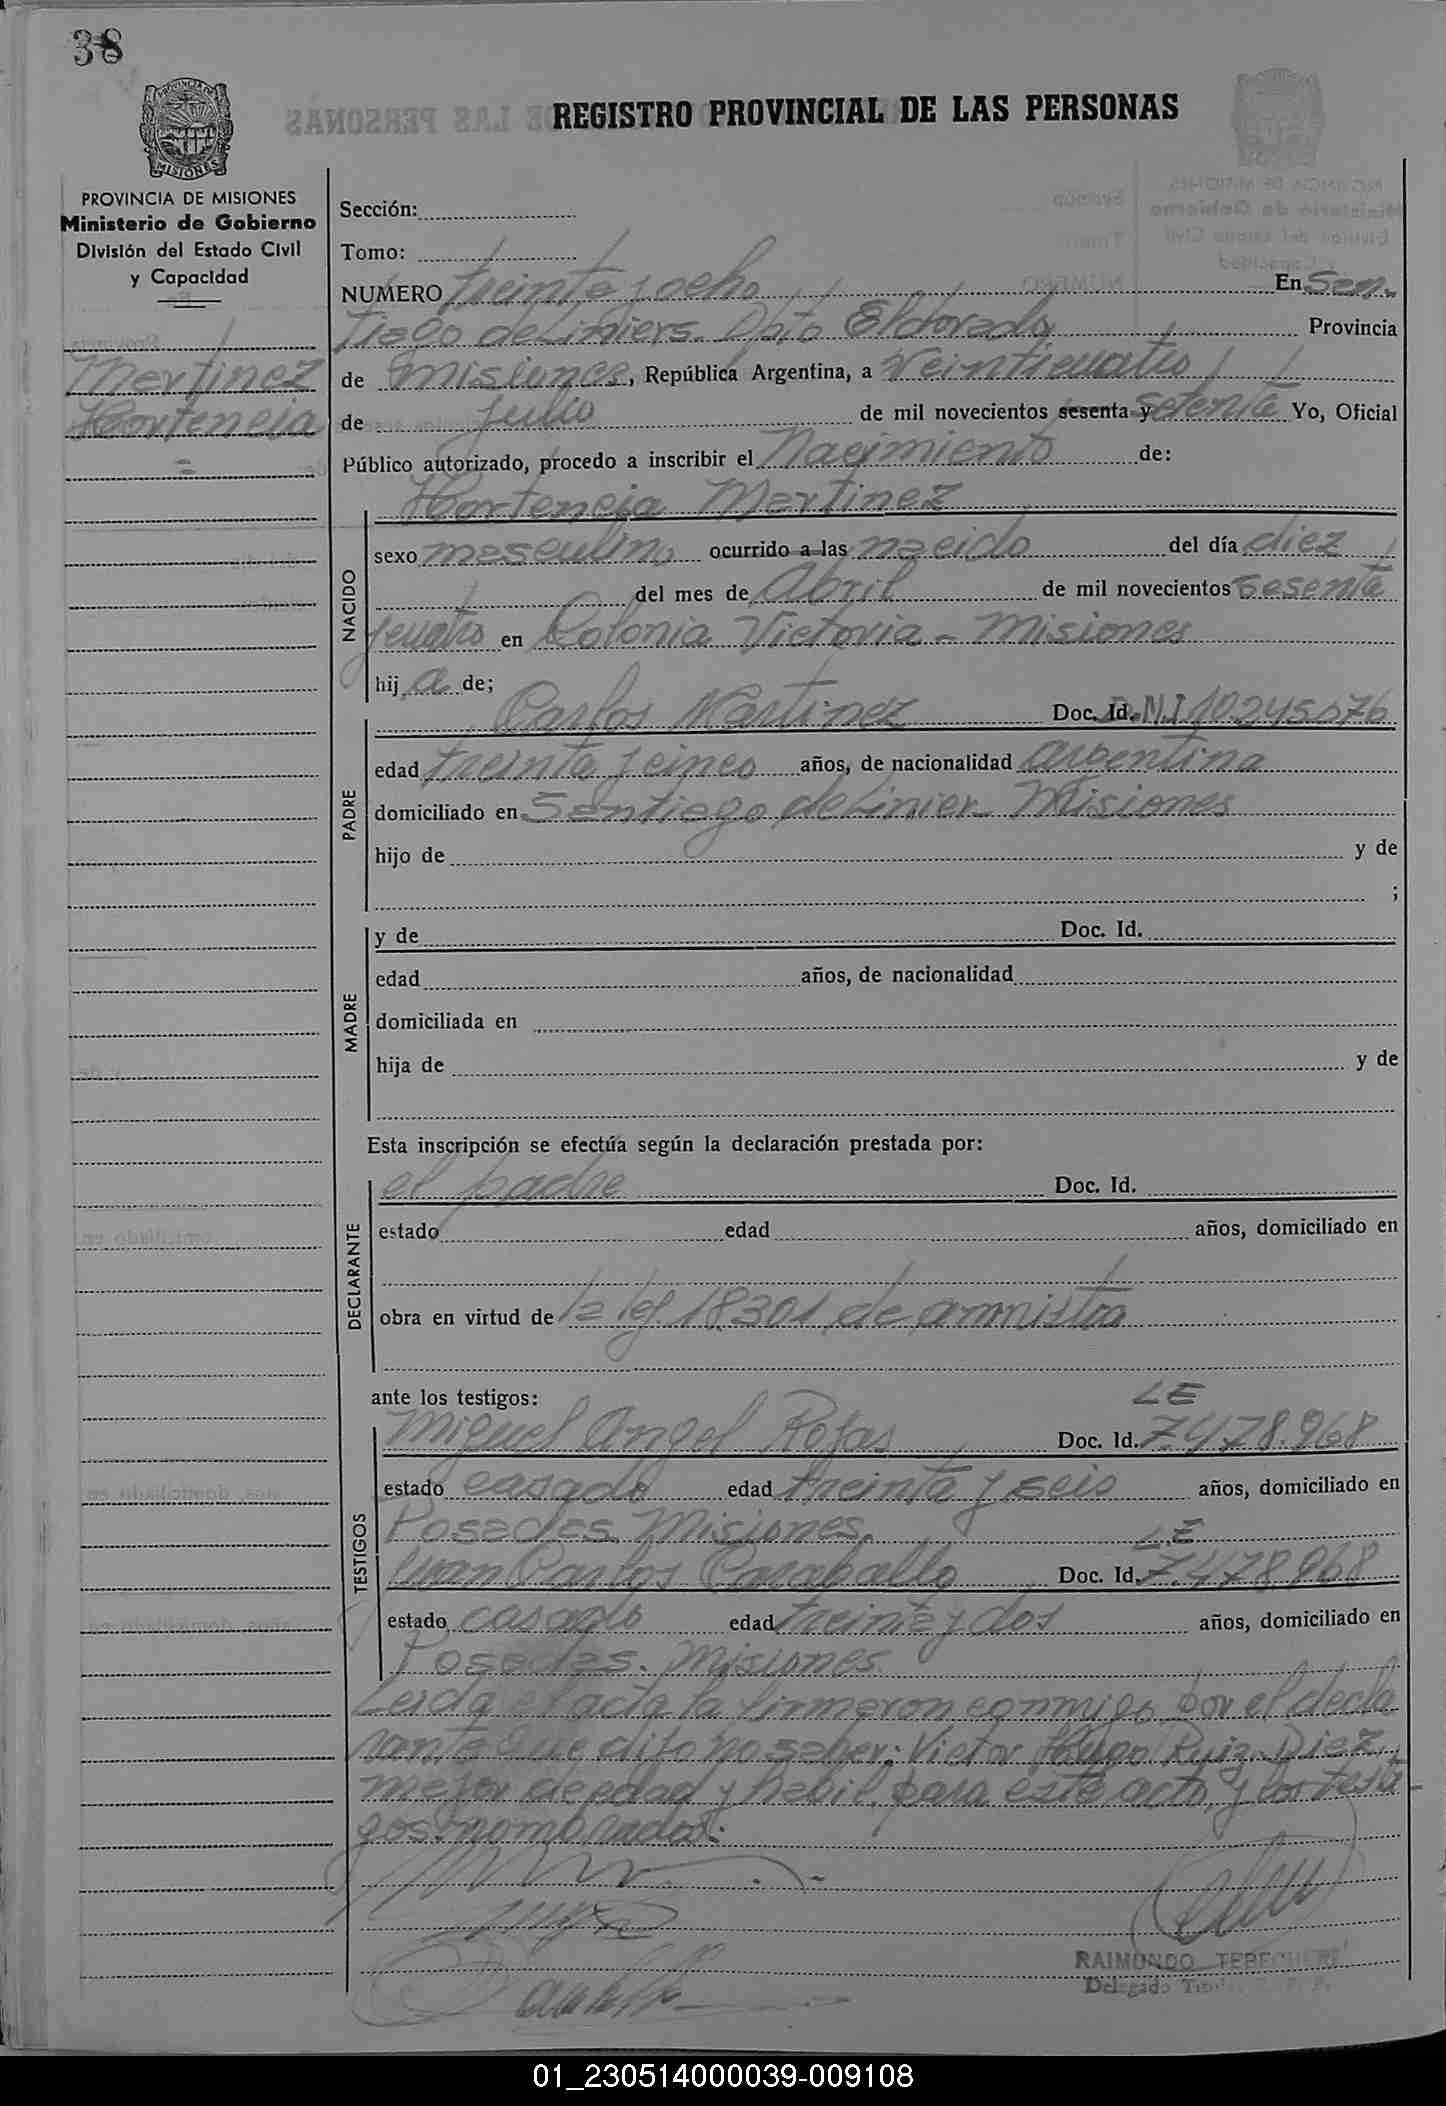 38
REGISTRO PROVINCIAL DE LAS PERSONAS
PROVINCIA DE MISIONES
Ministerio de Gobierno
División del Estado Civil
y Capacidad
Martinez
Hortencia
=
Sección:
Tomo:
NUMERO treinta y ocho En San
tiago de Liniers. Dpto Eldorado Provincia
de misiones, República Argentina, a Veinticuatro
de julio de mil novecientos sesenta y setenta Yo, Oficial
Público autorizado, procedo a inscribir el Nacimiento de:
Hortencia Martinez
NACIDO
sexo masculino ocurrido a las nacido del día diez
del mes de Abril de mil novecientos sesenta
y cuatro en Colonia Victoria - Misiones
hij a de;
PADRE
Carlos Martinez Doc. Id. D.N.I 10245076
edad treinta y cinco años, de nacionalidad argentina
domiciliado en Santiago de Linier - Misiones
hijo de y de
;
MADRE
y de Doc. Id.
edad años, de nacionalidad
domiciliada en
hija de y de
Esta inscripción se efectúa según la declaración prestada por:
DECLARANTE
el padre Doc. Id.
estado edad años, domiciliado en
obra en virtud de la ley 18.301 de amnistia
ante los testigos:
TESTIGOS
LE
Miguel Angel Rojas Doc. Id. 7.478.968
estado casado edad treinta y seis años, domiciliado en
Posadas Misiones.
L.E
Juan Carlos Caraballo Doc. Id. 7.478.868
estado casado edad treinta y dos años, domiciliado en
Posadas. Misiones
Leida el acta la firmaron conmigo por el decla
rante que dijo no saber: Victor Hugo Ruiz Diez,
mayor de edad y habil para este acto, y los testi-
gos nombrados.
RAIMUNDO
Delegado
01_230514000039-009108